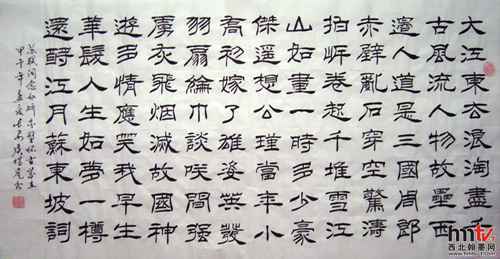 大江東去浪淘盡千
古風流人物故壘西
邊人道是三國周郎
赤壁亂石穿空驚濤
拍岸卷起千堆雪江
山如畫一時多少豪
傑遙想公瑾當年小
喬初嫁了雄姿英發
羽扇綸巾談咲間强
虜灰飛烟滅故國神
遊多情應笑我早生
華髮人生如夢一樽
還酹江月蘇東坡詞
蘇軾词念奴嬌赤壁懷古
甲午年孟夏
hmw
西北翰墨网